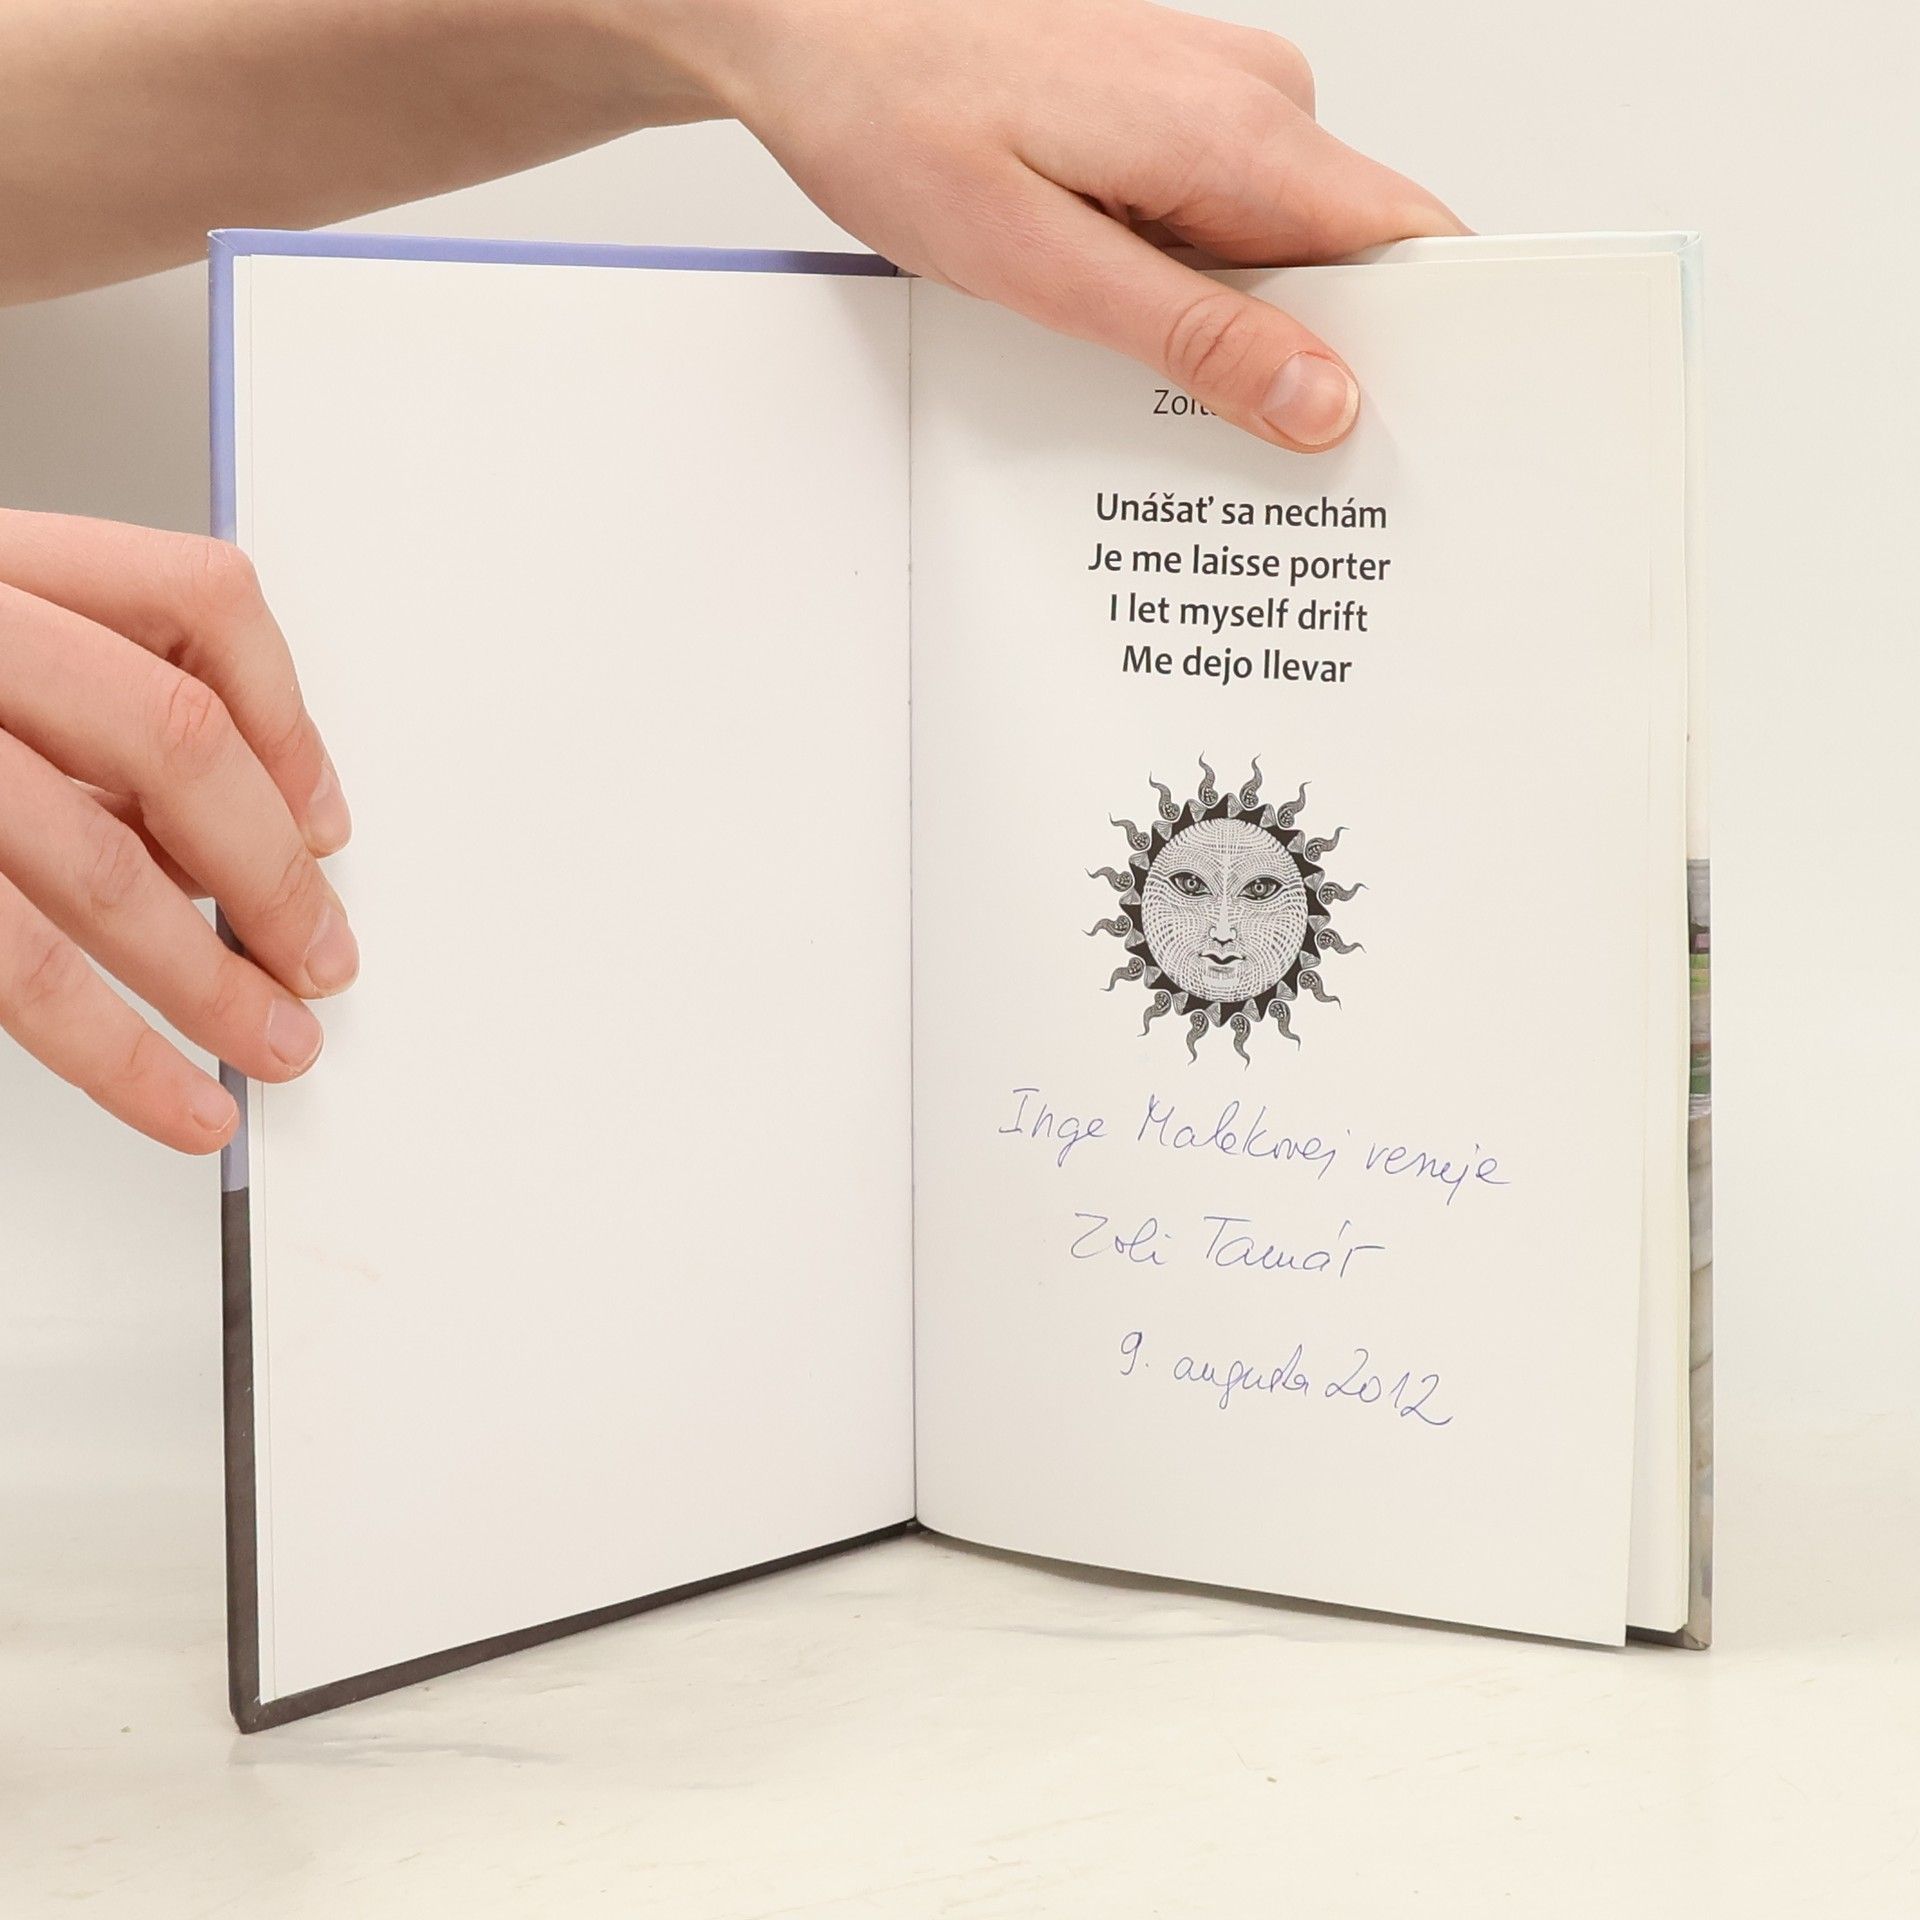 Unášať sa nechám
Je me laisse porter
I let myself drift
Me dejo llevar
Inge Malekovej venuje
Zoli Tamár
9. augusta 2012